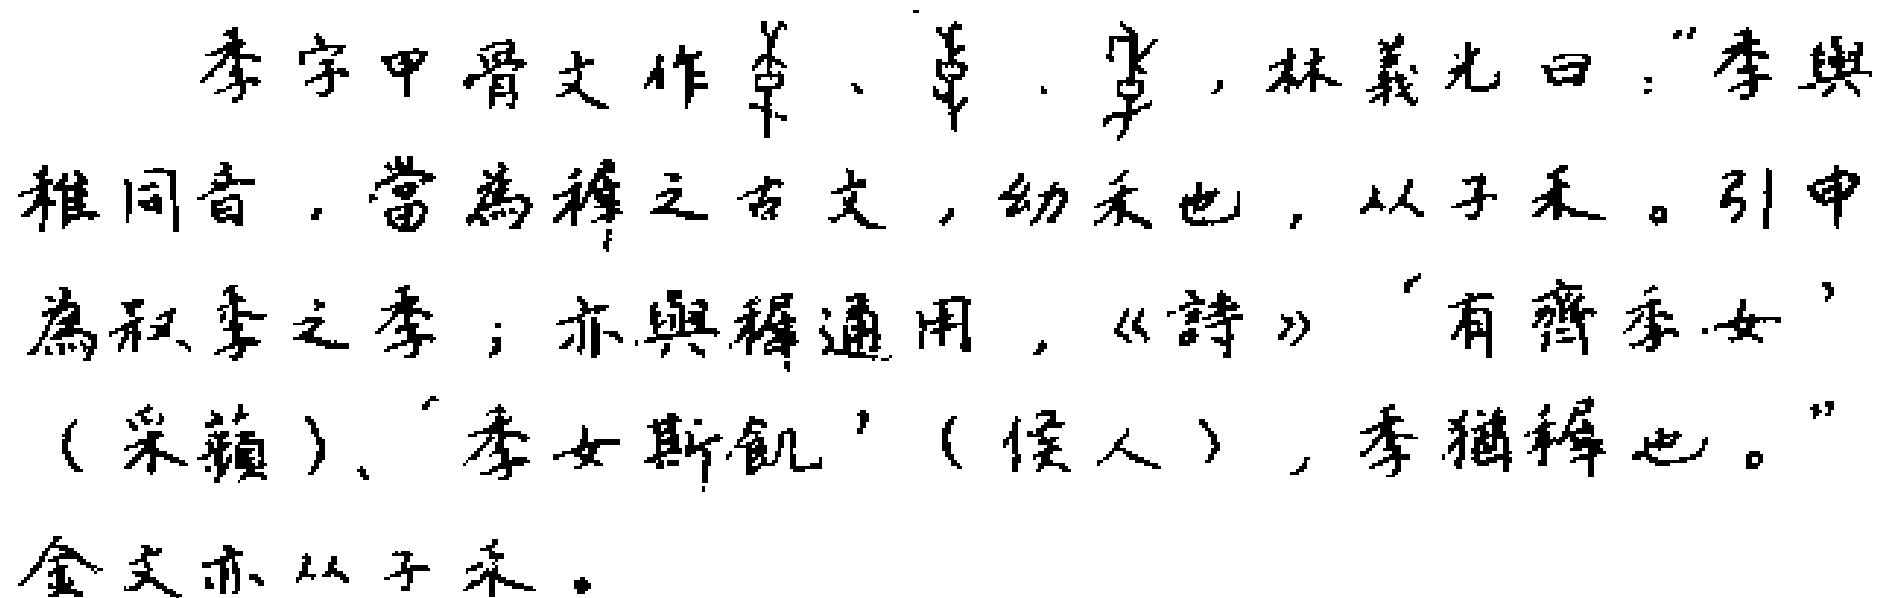 季字甲骨文作、、，林義光曰：“季與
稚同音，當為稺之古文，幼禾也，从子禾。引申
為叔季之季；亦與稺通用，《詩》‘有齊季女’
（采蘋）、‘季女斯飢’（侯人），季猶稺也。”
金文亦从子禾。